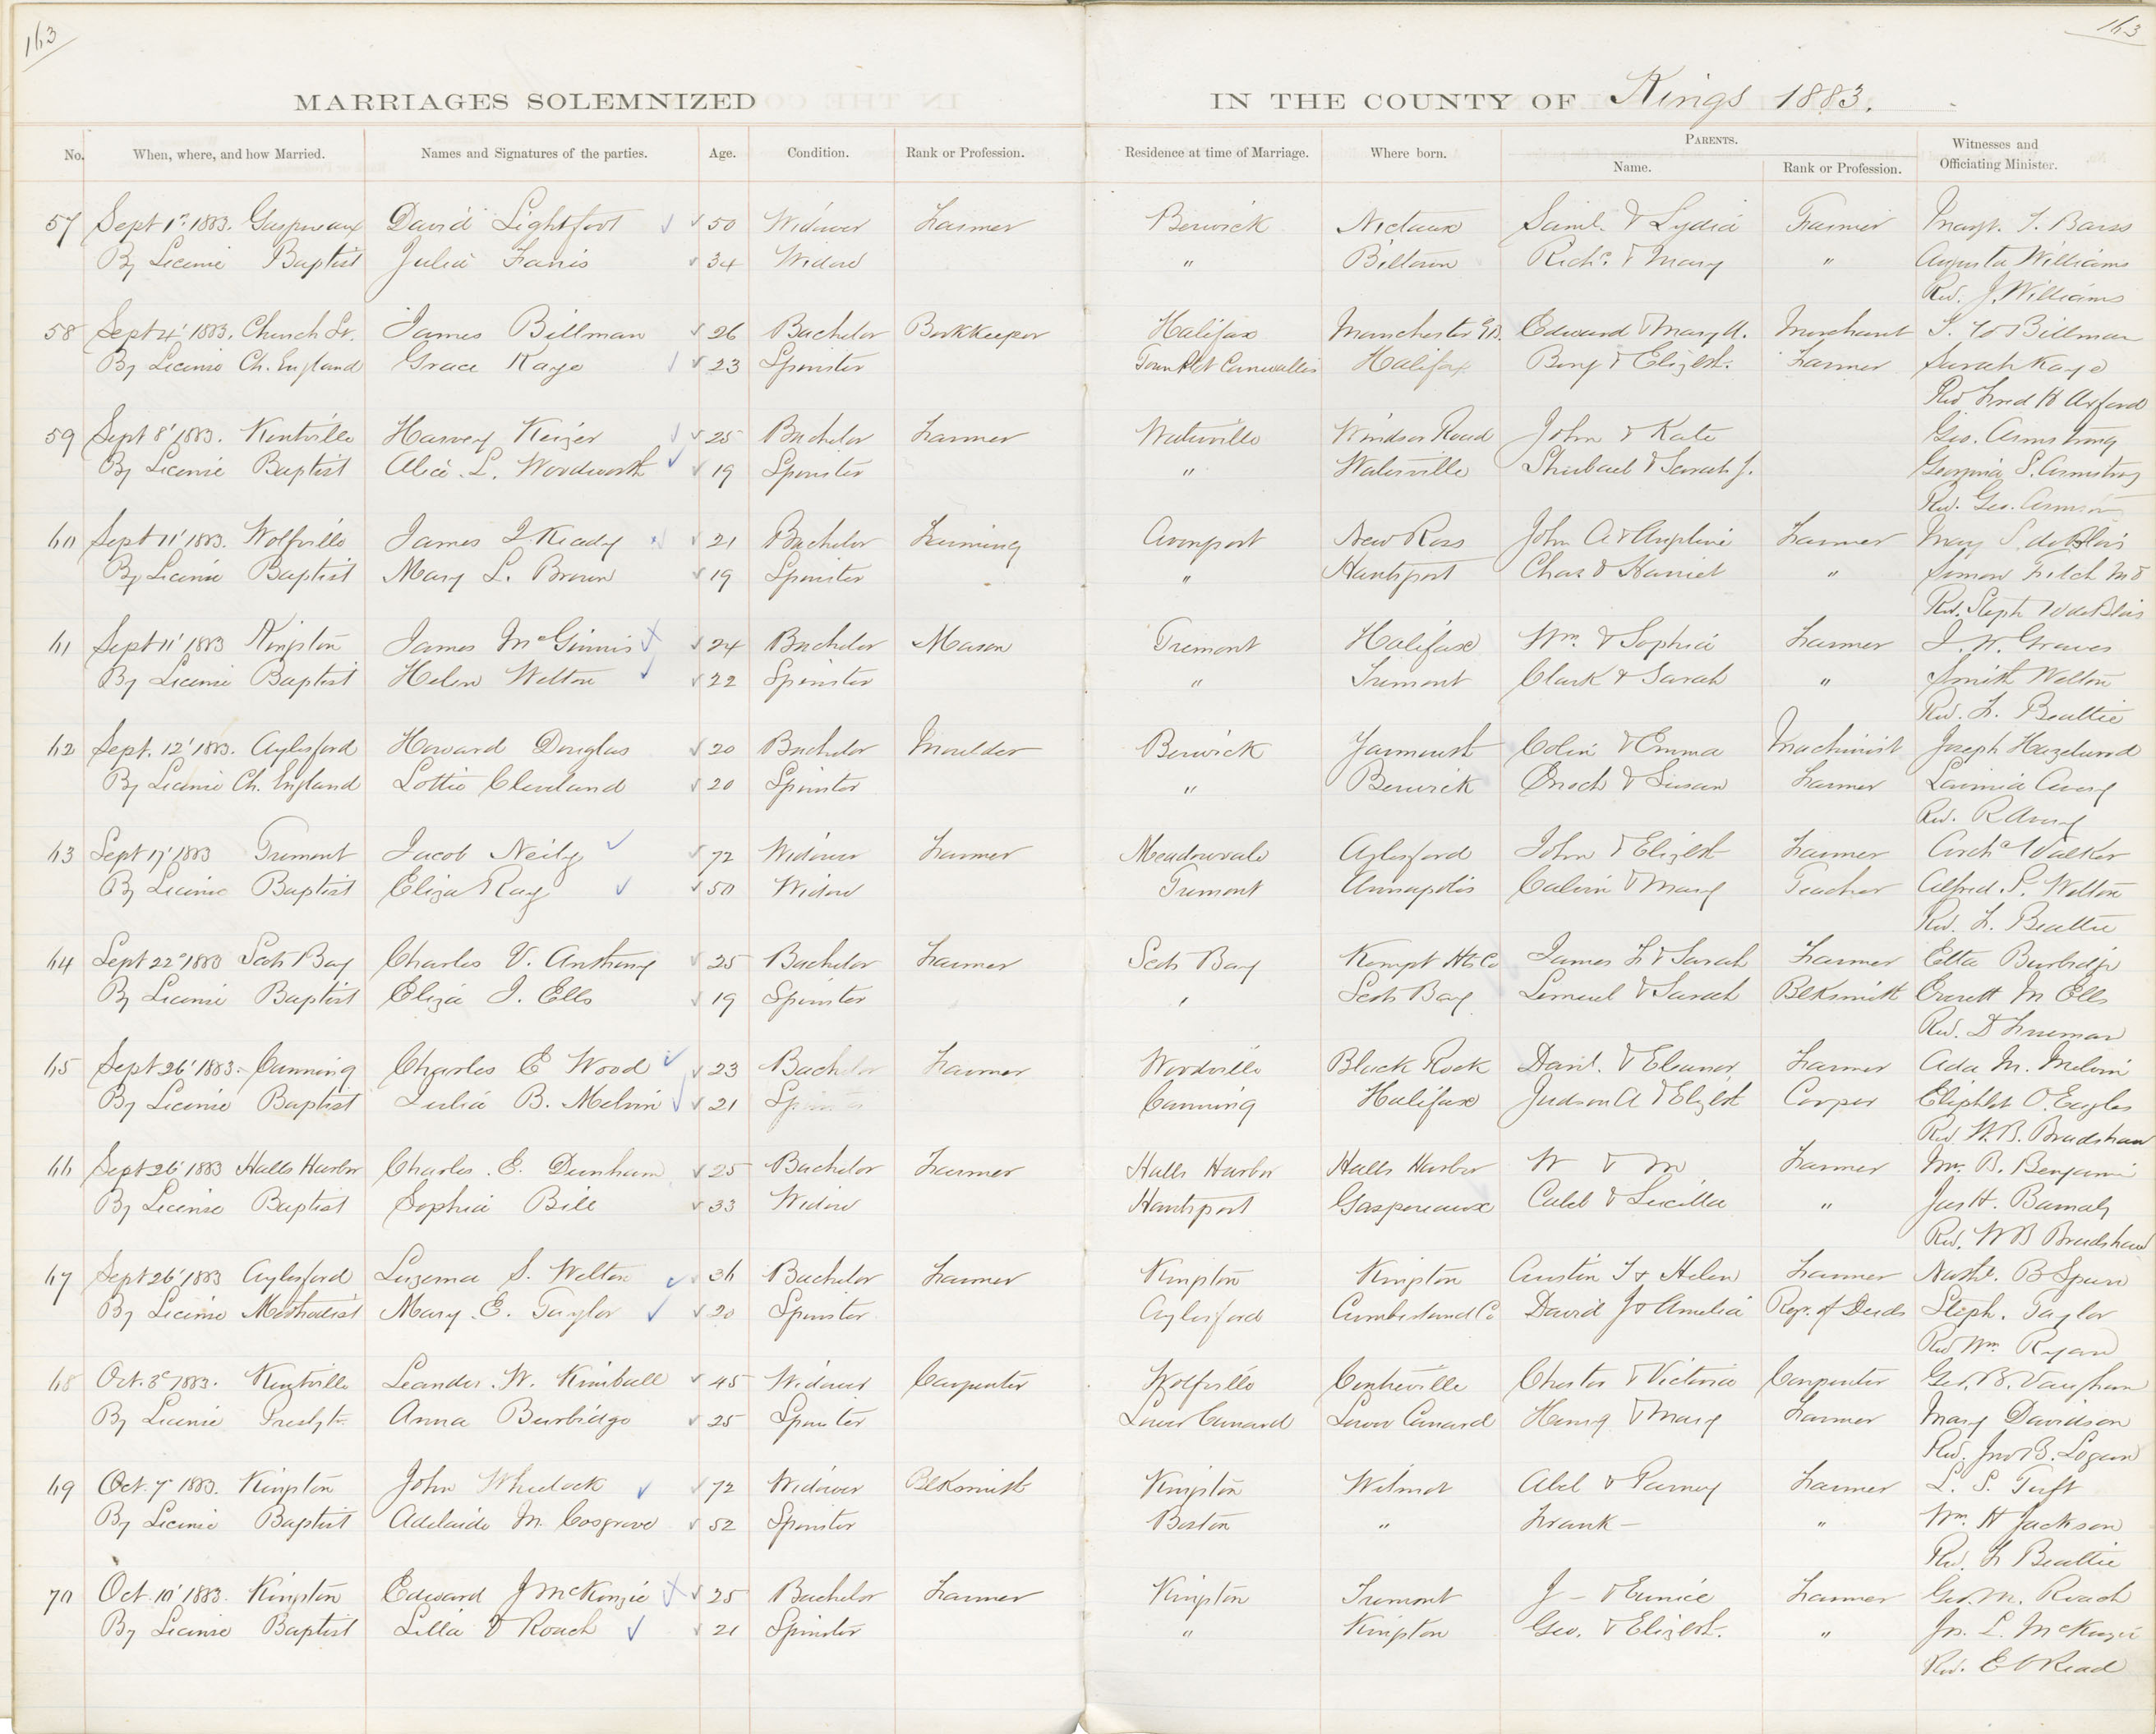 163
163
MARRIAGES SOLEMNIZED IN THE COUNTY OF Kings 1883.
No. When, where, and how Married. Names and Signatures of the parties. Age. Condition. Rank or Profession. Residence at time of Marriage. Where born. PARENTS. Witnesses and Officiating Minister.
Name. Rank or Profession.
57 Sept 1st 1883. Gaspereaux David Lightfoot 50 Widower Farmer Berwick Nictaux Saml. & Lydia Farmer Margt. T. Barss
By License Baptist Julia Farris 34 Widow " Biltown Richd. & Mary " Augusta Williams
Rev. J. Williams
58 Sept 4' 1883. Church St. James Billman 26 Bachelor Bookkeeper Halifax Manchester Edward & Mary A. Merchant Billman
By License Ch. England Grace Kaye 23 Spinster Cornwallis Halifax Benj & Elizbt. Farmer Sarah Kaye
Rev Fred H Axford
59 Sept 8' 1883. Kentville Harvey Keizer 25 Bachelor Farmer Waterville Windsor Road John & Kate Geo. Armstrong
By License Baptist Alice. L. Woodworth 19 Spinster " Waterville Shubael & Sarah J. Georgina S. Armstrong
Rev. Geo. Armstrong
60 Sept 11' 1883. Wolfville James I Keady 21 Bachelor Farming Avonport New Ross John A & Angeline Farmer Mary S. deBlois
By License Baptist Mary L. Brown 19 Spinster " Hantsport Chas & Harriet " Simon Fitch MD
Rev. Steph W deBlois
61 Sept 11' 1883 Kingston James McGinnis 24 Bachelor Mason Tremont Halifax Wm. & Sophia Farmer I. W. Graves
By License Baptist Helen Welton 22 Spinster " Tremont Clark & Sarah " Smith Welton
Rev. F. Beattie
62 Sept. 12' 1883. Aylesford Howard Douglas 20 Bachelor Moulder Berwick Yarmouth Colin & Emma Machinist Joseph Hazelwood
By License Ch. England Lottie Cleveland 20 Spinster " Berwick Enoch & Susan Farmer Lavinia Avery
Rev. R Avery
63 Sept 17' 1883 Tremont Jacob Neily 72 Widower Farmer Meadowvale Aylesford John & Elizbt Farmer Archd Walker
By License Baptist Eliza Ray 50 Widow Tremont Annapolis Calvin & Mary Teacher Alfred. S. Welton
Rev. F. Beattie
64 Sept 22d 1883 Scots Bay Charles V. Anthony 25 Bachelor Farmer Scots Bay Kempt Hts Co James F & Sarah Farmer Etta Burbidge
By License Baptist Eliza J. Ells 19 Spinster " Scots Bay Lemuel & Sarah Blksmith Everett M Ells
Rev. D Freeman
65 Sept 26' 1883. Canning Charles E Wood 23 Bachelor Farmer Woodville Black Rock Danl. & Eleanor Farmer Ada M. Melvin
By License Baptist Julia B. Melvin 21 Spinster Canning Halifax Judson A & Elizbt Cooper Eliphlet O. Eagles
Rev. W. B. Bradshaw
66 Sept 26' 1883 Halls Harbor Charles. E. Dunham 25 Bachelor Farmer Halls Harbor Halls Harbor W & M Farmer Wm. B. Benjamin
By License Baptist Sophia Bill 33 Widow Hantsport Gaspereaux Caleb & Lucilla " Jas H. Barnaby
Rev. W B Bradshaw
67 Sept 26' 1883 Aylesford Luzerna S. Welton 36 Bachelor Farmer Kingston Kingston Austin T & Helen Farmer Nathl. B Spurr
By License Methodist Mary. E. Taylor 20 Spinster Aylesford Cumberland Co David J & Amelia Regr. of Deeds Steph. Taylor
Rev Wm. Ryan
68 Oct. 3d 1883. Kentville Leander. W. Kimball 45 Widower Carpenter Wolfville Centreville Chester & Victoria Carpenter Geo. B. Vaughan
By License Presbytn. Anna Burbidge 25 Spinster Lower Canard Lower Canard Henry & Mary Farmer Mary Davidson
Rev. Jno B. Logan
69 Oct. 7' 1883. Kingston John Wheelock 72 Widower Blksmith Kingston Wilmot Abel & Parney Farmer L. S. Tuft
By License Baptist Adelaide M. Cosgrove 52 Spinster Boston " Frank — " Wm. H Jackson
Rev. F Beattie
70 Oct. 10' 1883. Kingston Edward J McKenzie 25 Bachelor Farmer Kingston Tremont J — & Eunice Farmer Geo. M. Roach
By License Baptist Lilla V Roach 21 Spinster " Kingston Geo. & Elizbt. " Jn. L. McKenzie
Rev. E O Read